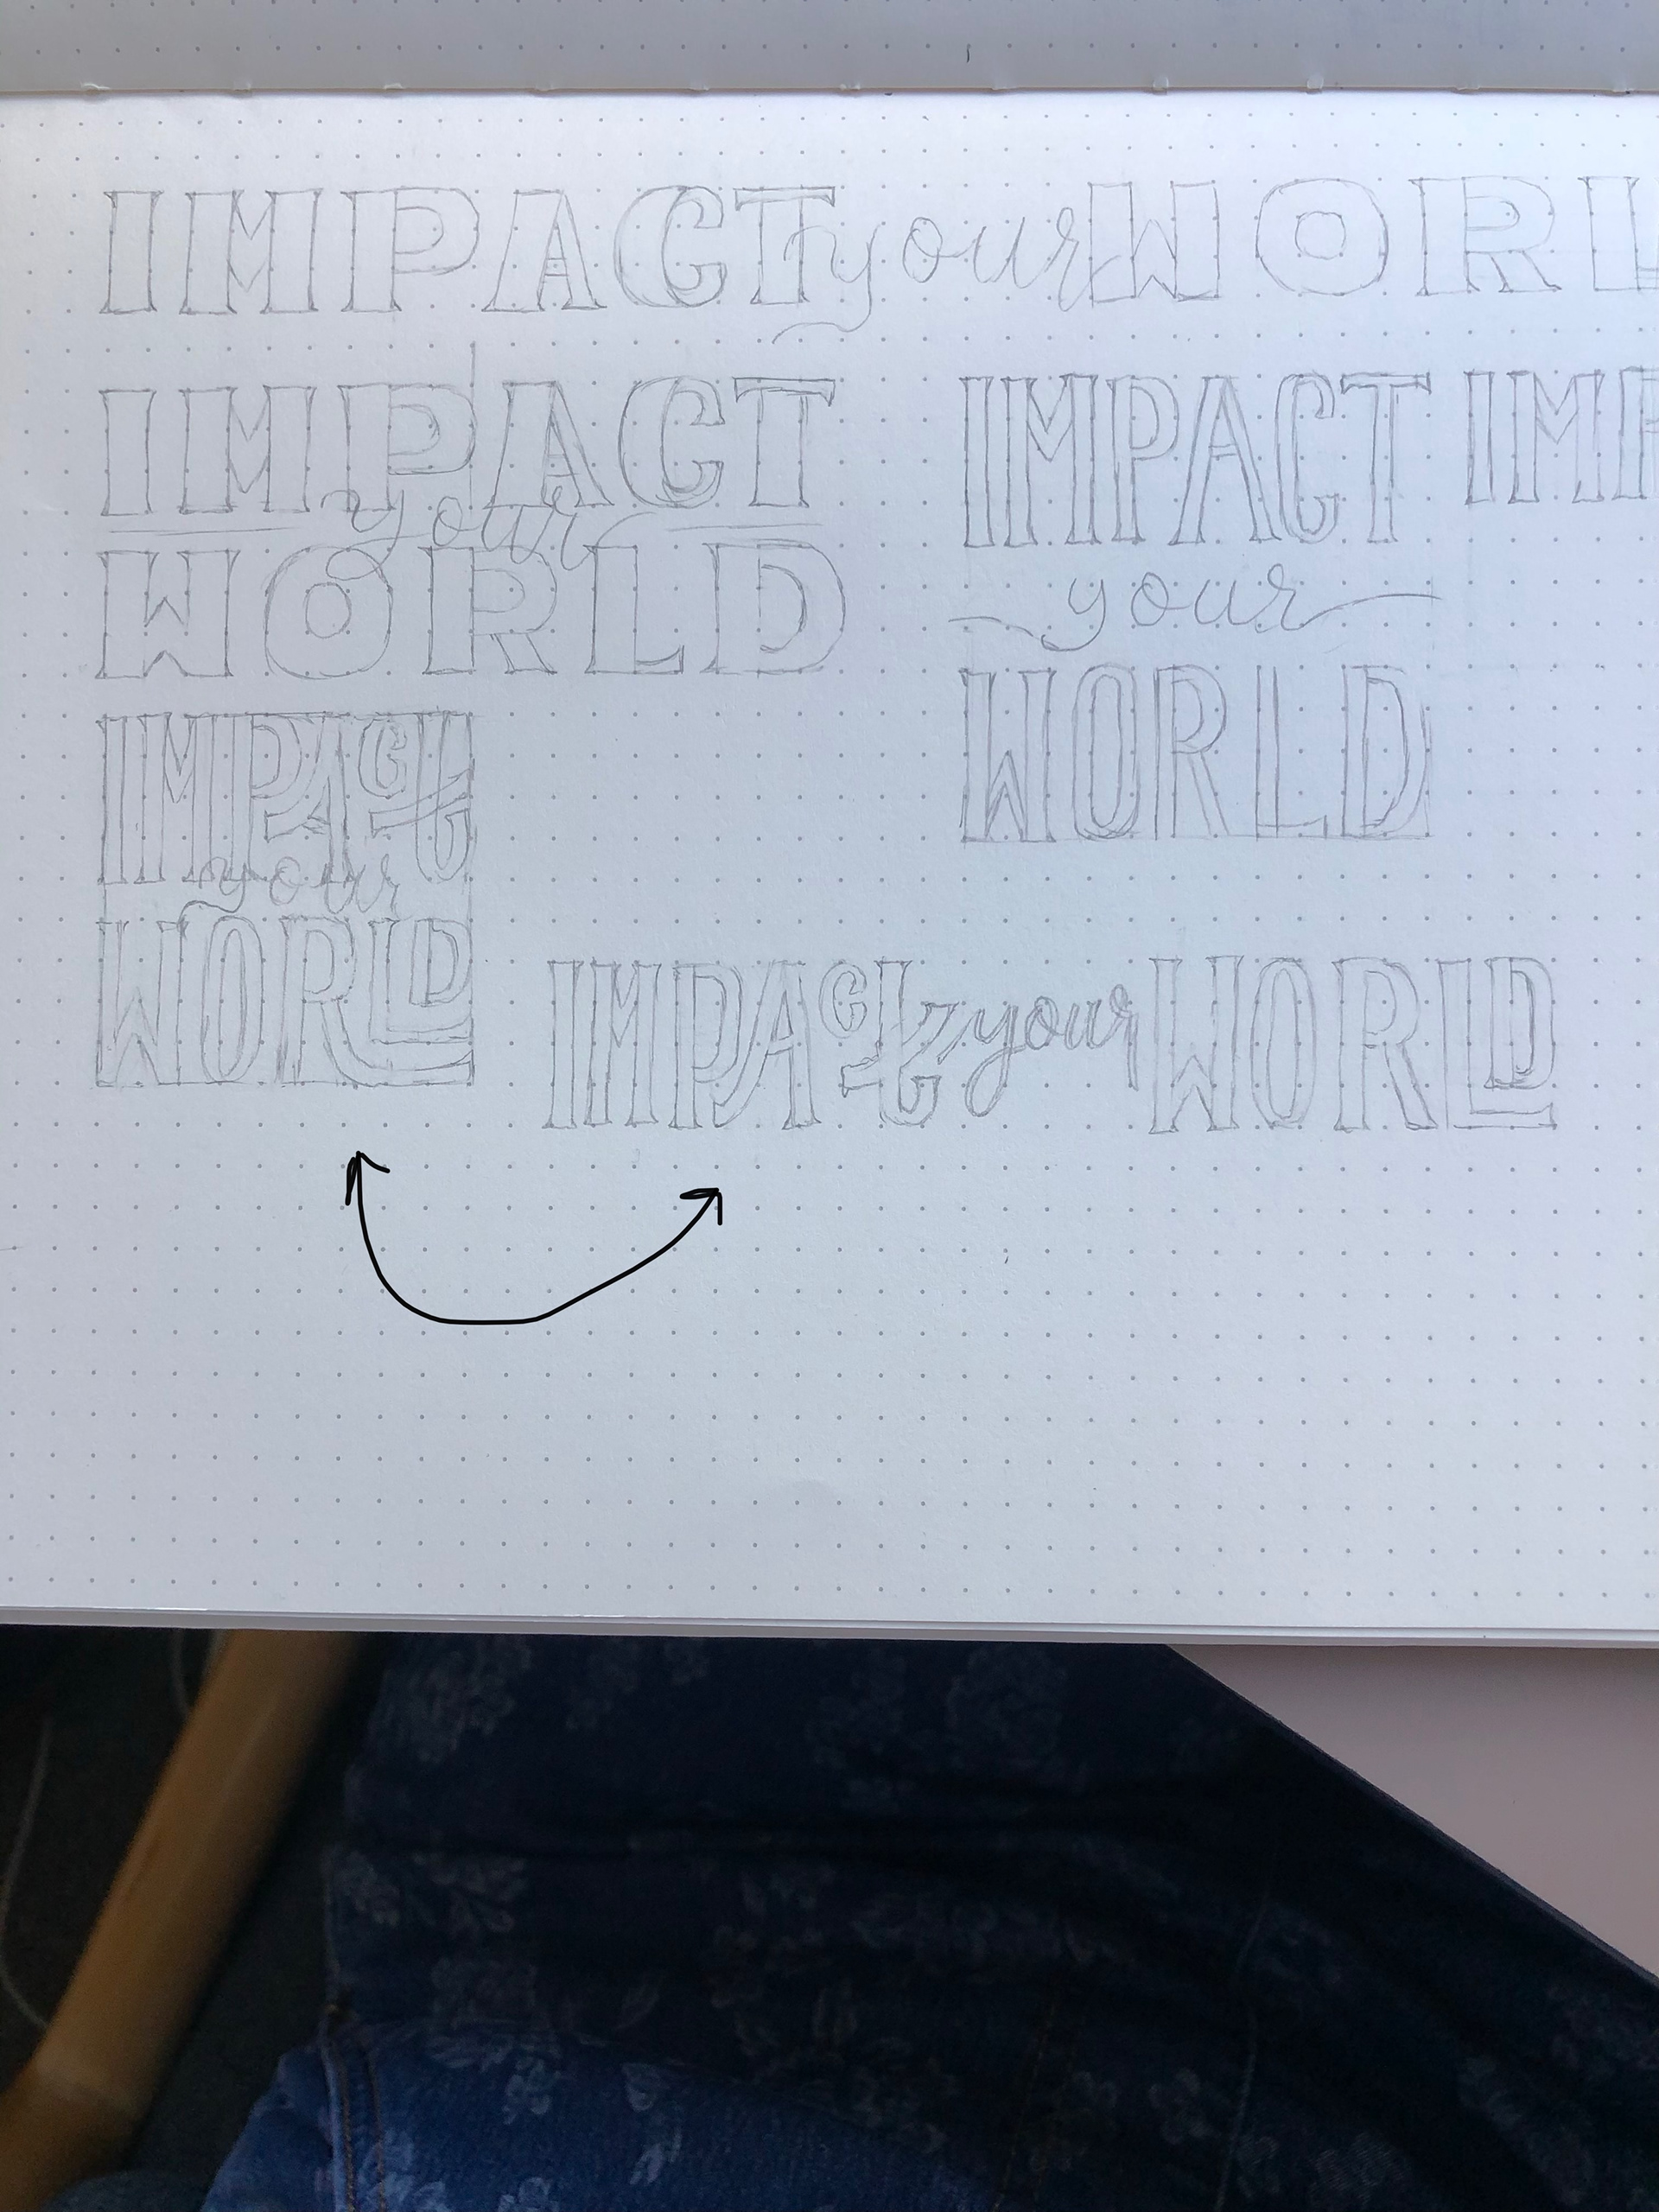 IMPACT your WORL
IMPACT
your
WORLD
IMPACT
your
WORLD
IMP
IMPACt
your
WORLD
IMPACt your WORLD